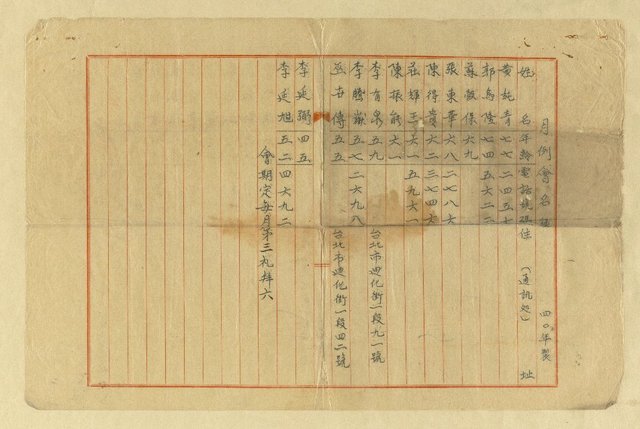 月例會名
四〇年裝
姓名年齡電話號碼住（通訊処）址
黃純青七七二四五七
郭烏隆七四五六二二
蘇穀保六九
張東華六八二七八六
陳得貴六二三七四六
莊輝玉六一五九六一
陳振能六一
李有泉五九 台北市迪化街一段九一號
李騰嶽五七二六九八
巫古傳五五 台北市迪化街一段四二號
李延彌四五
李延旭五二四六九二
會期定每月第三礼拜六